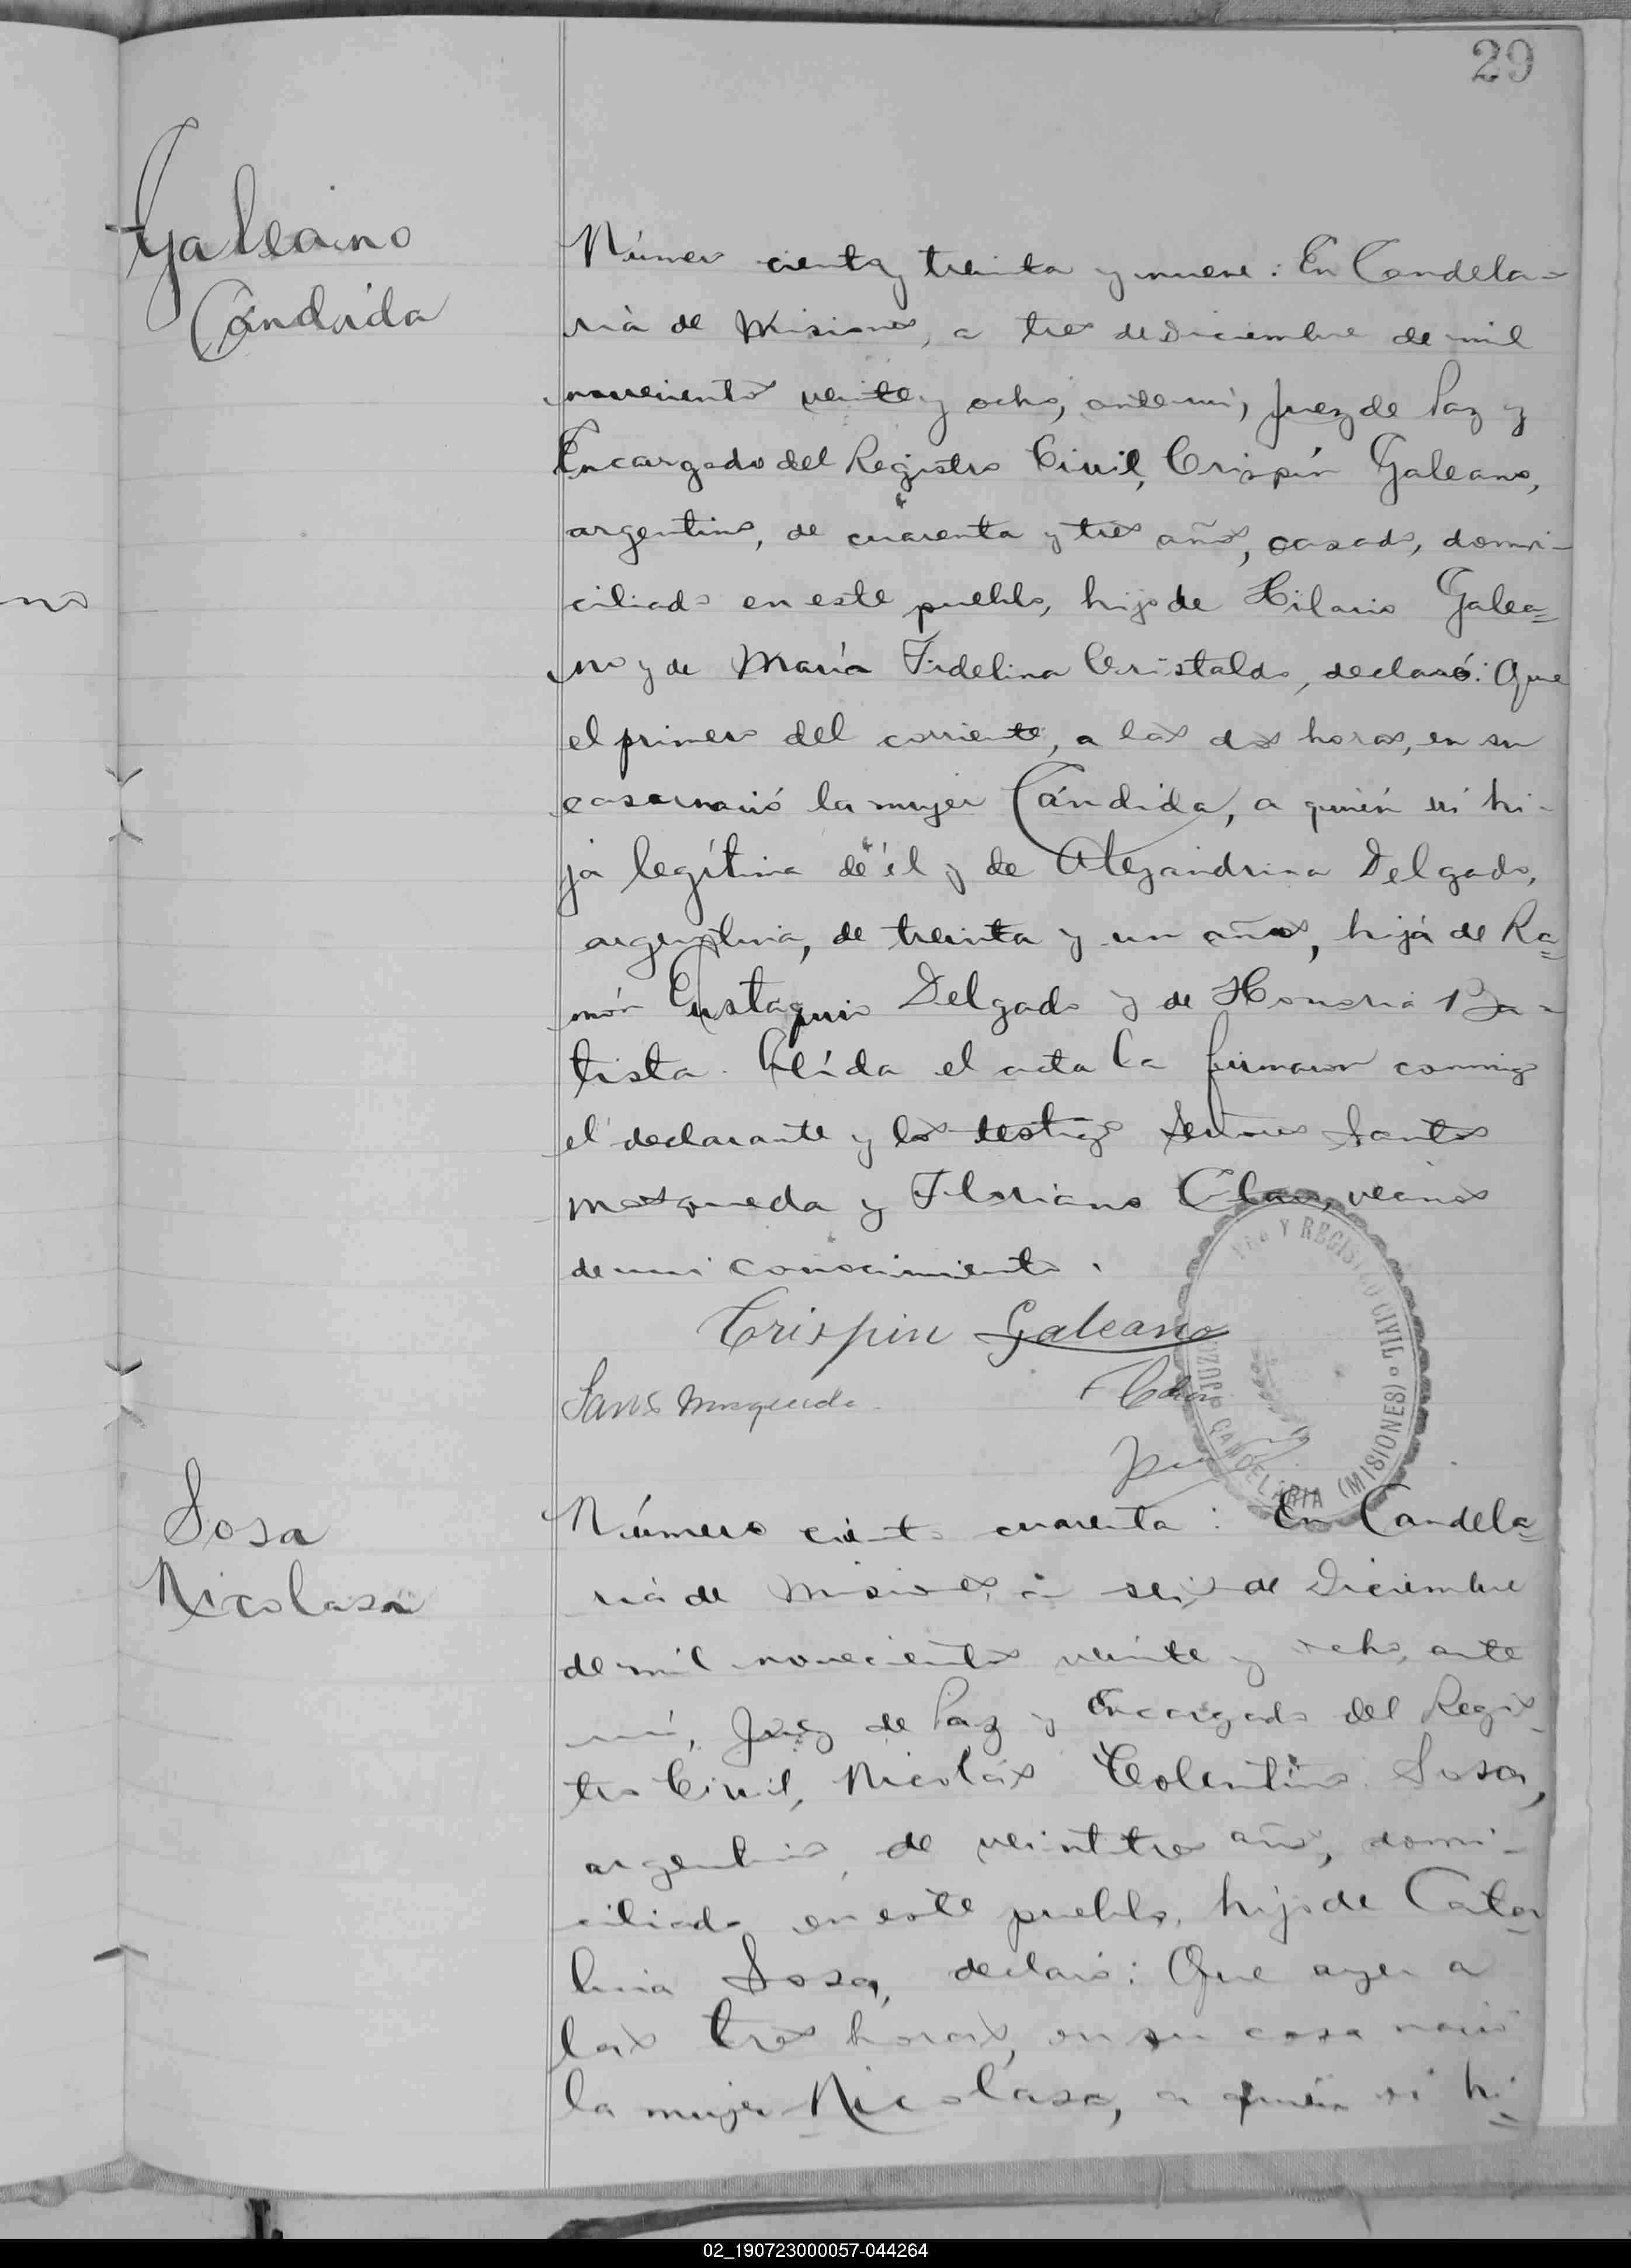 29
Galeano
Cándida
Número ciento y treinta y nueve: En Candela-
ria de Misiones, a tres de Diciembre de mil
novecientos veinte y ocho, ante mi, Juez de Paz y
Encargado del Registro Civil, Crispín Galeano,
argentino, de cuarenta y tres años, casado, domi-
ciliado en este pueblo, hijo de Hilario Galea=
no y de María Fidelina Cristaldo, declaró: Que
el primero del corriente, a las dos horas, en su
casa nació la mujer Cándida, a quién ví hi-
ja legítima de él y de Alejandrina Delgado,
argentina, de treinta y un años, hija de Ra=
món Eustaquio Delgado y de Honoria Ba-
tista. Leída el acta la firmaron conmigo
el declarante y los testigos Señores Santos
Mosqueda y Floriano, vecinos
de mi conocimiento.
Crispin Galeano
Mosqueda
Y REGISTRO CIVIL
JUZ
CANDELARIA (MISIONES)
Sosa
Nicolasa
Número ciento cuarenta: En Candela=
ria de Misiones, a seis de Diciembre
de mil novecientos veinte y ocho, ante
mí, Juez de Paz y Encargado del Regis-
tro Civil, Nicolás Tolentino Sosa,
argentino, de veintitres años, domi-
ciliado en este pueblo, hijo de Cata
lina Sosa, declaró: Que ayer a
las tres horas, en su casa nació
la mujer Nicolasa, a quién ví hi=
no
02_190723000057-044264